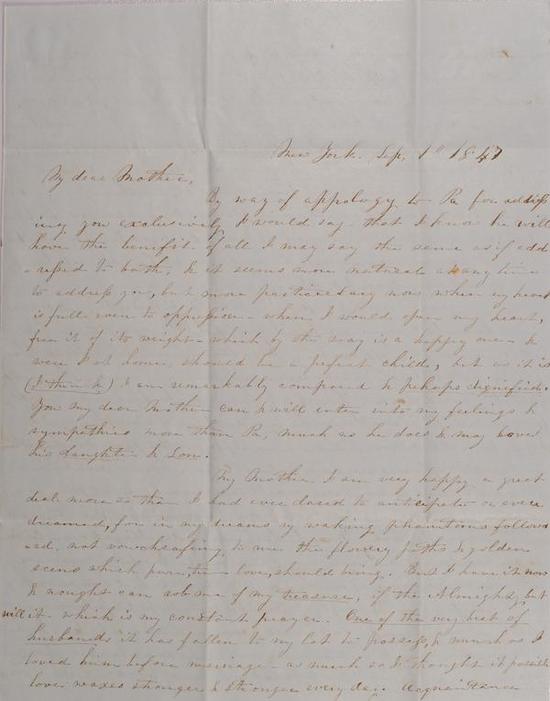 New York. Sep. 1st 1847
My dear Mother,
By way of appology to Pa for address
ing you exclusively, I would say that I know he will
have the benefit of all I may say the same as if add
-ressed to both, & it seems more natural at any time
to address you, but more particularly now when my heart
is full even to oppression - when I would open my heart,
free it of its weight - which by the way is a happy one &
were I at home, should be a perfect child, but as it is
(I think) I am remarkably composed & pehaps dignified.
You my dear Mother can & will enter into my feelings &
sympathies more than Pa, much as he does & may love
his daughter & Son.
My Mother I am very happy a great
deal more so than I had ever dared to anticipate or even
dreamed, for in my dreams my waking phantoms follow
ed, not vouchsafing to me the flowery paths & golden
scenes which pure, true love, should bring. But I have it now
& nought can rob me of my treasure, if the Almighty but
will it - which is my constant prayer. One of the very best of
husbands it has fallen to my lot to possess, & much as I
loved him before marriage - as much as I thought it possible
love waxes stronger & stronger every day. Acquaintance